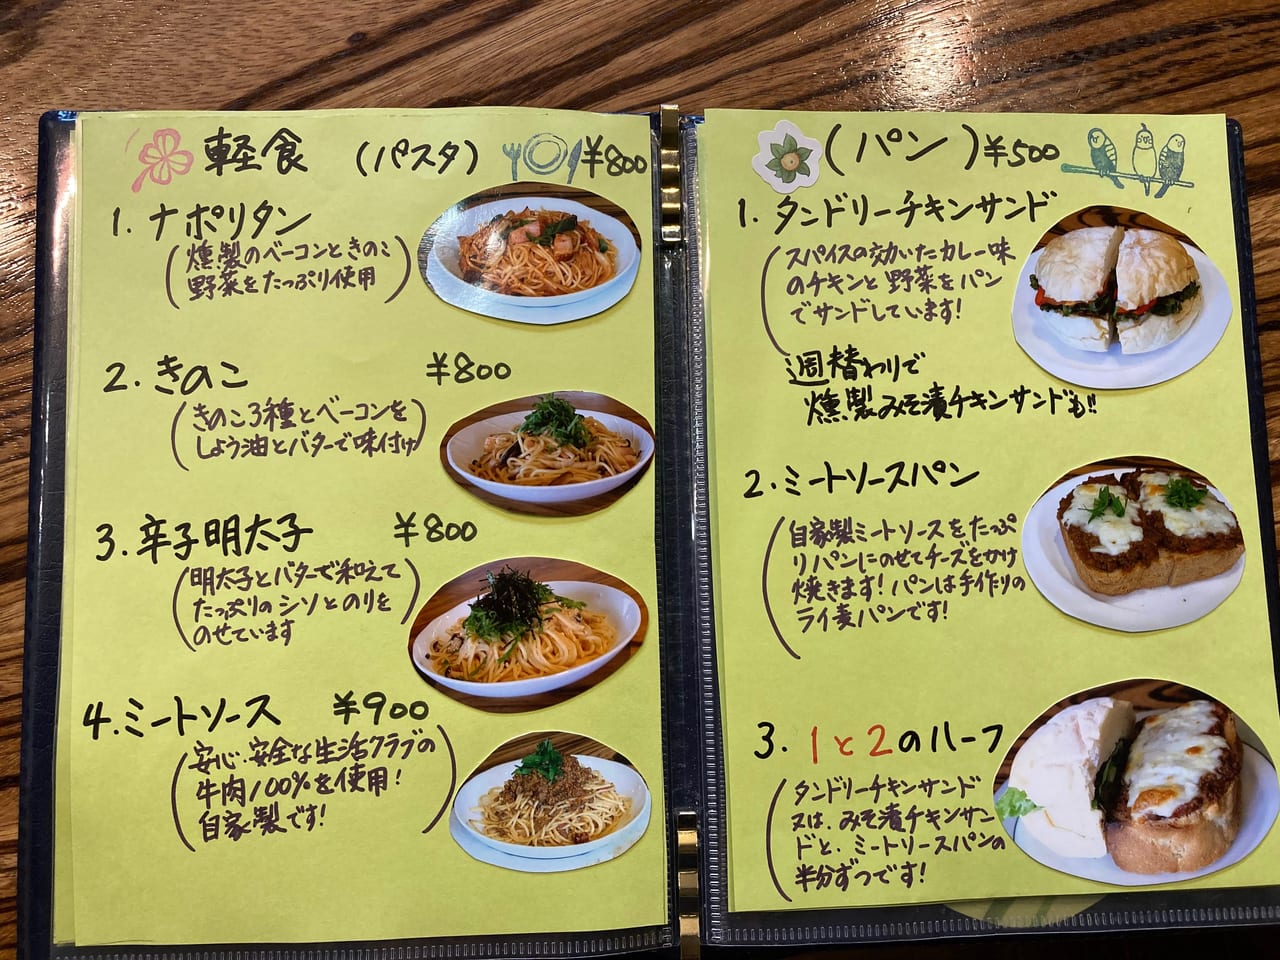 軽食 (パスタ) ¥800
1. ナポリタン
(燻製のベーコンときのこ
野菜をたっぷり使用)
2. きのこ ¥800
(きのこ3種とベーコンを
しょう油とバターで味付け)
3. 辛子明太子 ¥800
(明太子とバターで和えて
たっぷりのシソとのりを
のせています)
4. ミートソース ¥900
(安心・安全な生活クラブの
牛肉100%を使用!
自家製です!)
(パン) ¥500
1. タンドリーチキンサンド
(スパイスの効いたカレー味
のチキンと野菜をパン
でサンドしています!
週替わりで
燻製みそ漬チキンサンドも!!
2. ミートソースパン
(自家製ミートソースをたっぷ
りパンにのせてチーズをかけ
焼きます!パンは手作りの
ライ麦パンです!
3. 1と2のハーフ
(タンドリーチキンサンド
又は、みそ漬チキンサン
ドと、ミートソースパンの
半分ずつです!